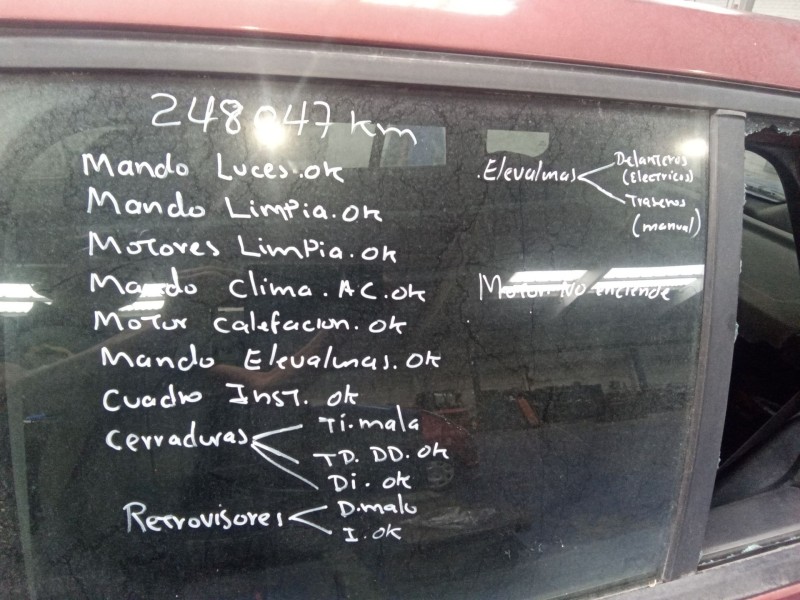 248047 km
Mando Luces.ok
Mando Limpia.ok
Motores Limpia.ok
Mando Clima.AC.ok
Motor Calefacion.ok
Mando Elevalunas.ok
Cuadro Inst. ok
Cerraduras
Ti.mala
TD. DD. ok
Di. ok
Retrovisores
D.malo
I. ok
.Elevalunas
Delanteros
(Electricos)
Traseros
(manual)
Motor No enciende